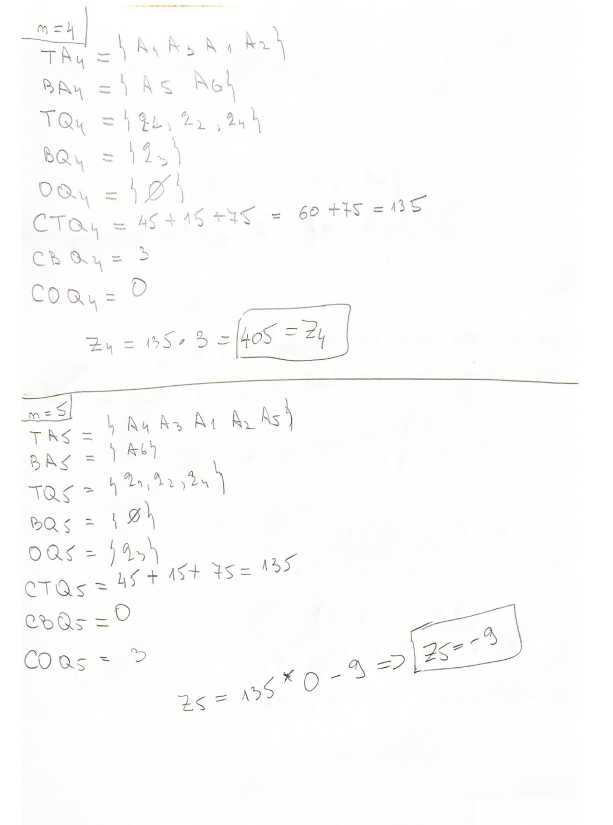 n=4
TA4 = { A4 A3 A1 A2 }
BA4 = { A5 A6 }
TQ4 = { q1, q2, q4 }
BQ4 = { q3 }
OQ4 = { Ø }
CTQ4 = 45 + 15 + 75 = 60 + 75 = 135
CBQ4 = 3
COQ4 = 0
Z4 = 135 • 3 = 405 = Z4
n=5
TA5 = { A4 A3 A1 A2 A5 }
BA5 = { A6 }
TQ5 = { q1, q2, q4 }
BQ5 = { Ø }
OQ5 = { q3 }
CTQ5 = 45 + 15 + 75 = 135
CBQ5 = 0
COQ5 = 3
Z5 = 135 * 0 - 9 => Z5 = -9